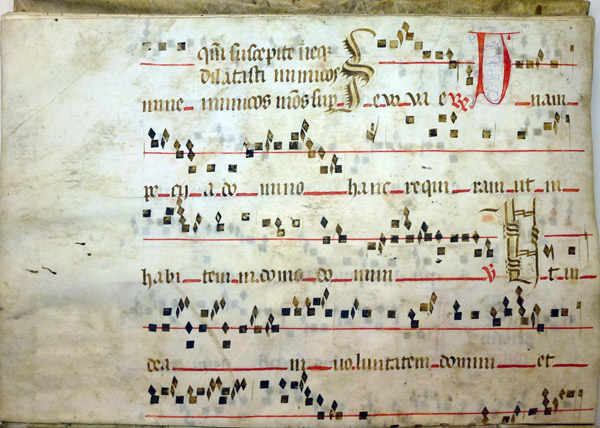 qm suscepisti me neq;
dilatasti inimicos
mine inimicos meos sup E vo va e Re U nam
pe cii a do mino hanc requi ram ut in
habi tem in domo do mini V U t vi
dea m vo luntatem domini et